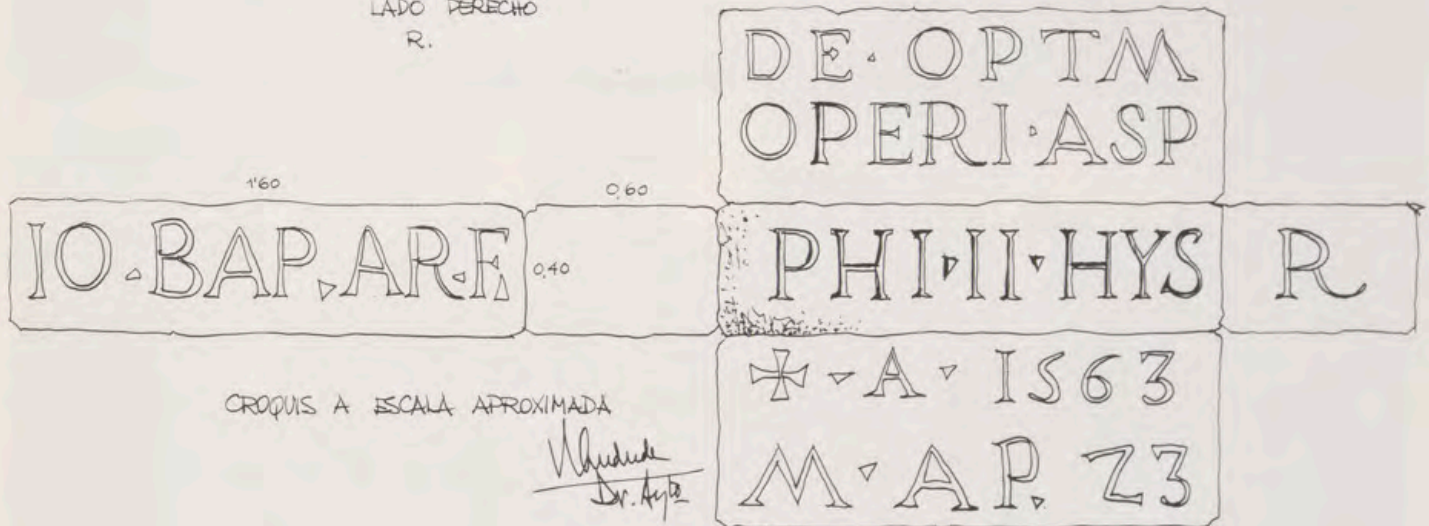 LADO DERECHO
R.
DE · OPTM
OPERI · ASP
1'60
0,60
IO · BAP · AR · F
0,40
PHI · II · HYS
R
✠ · A · 1563
M · AP. 23
CROQUIS A ESCALA APROXIMADA
Dr. Arqto